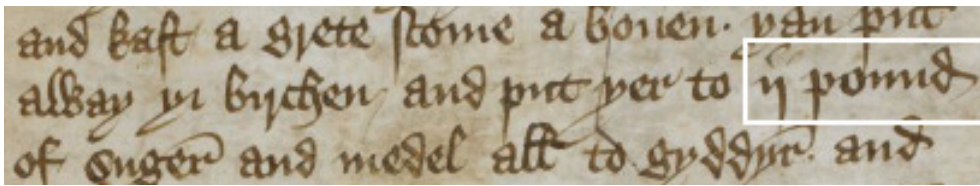 and kast a grete stone a bouen · yan put
alway yi byrchen and put yer to ij pound
of suger and medel all to gyddyr · and